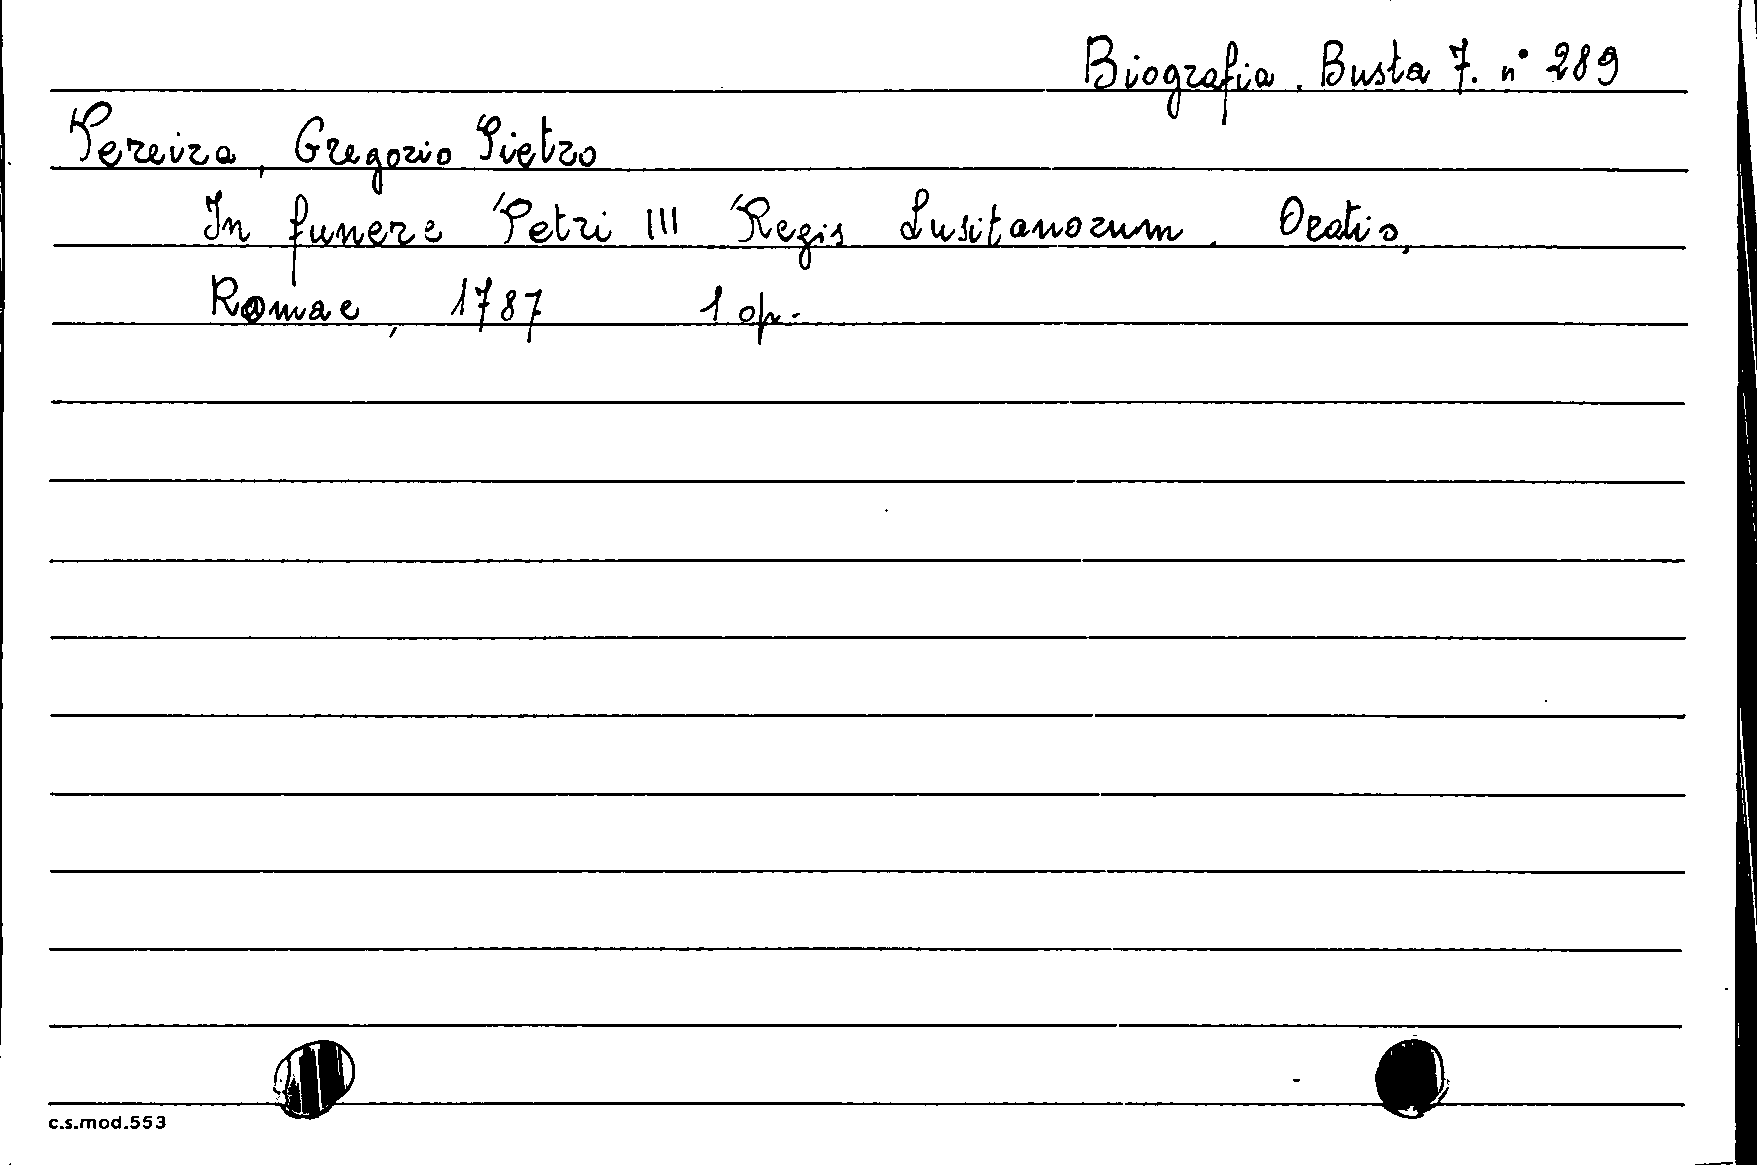 Biografia. Busta 7. n° 289
Pereira, Gregorio Pietro
In funere Petri III Regis Lusitanorum. Oratio,
Romae, 1787 1 op.
c.s.mod.553